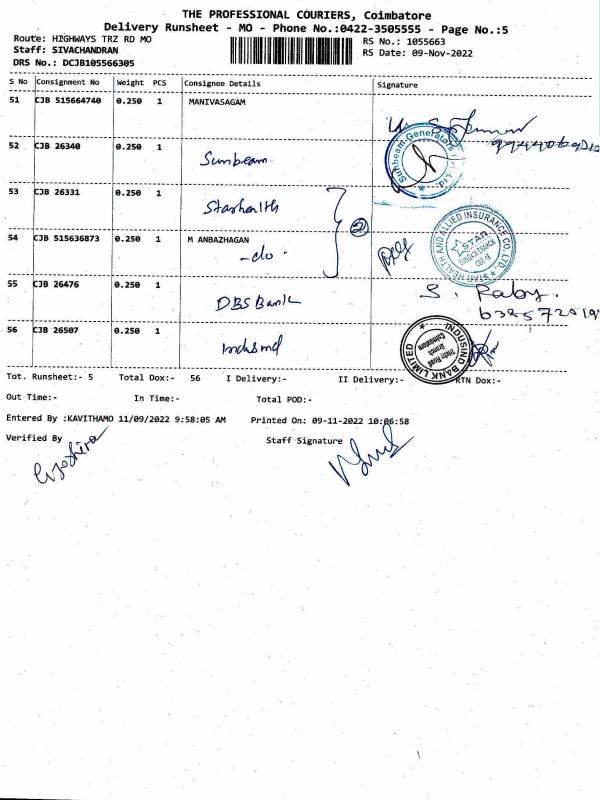 THE PROFESSIONAL COURIERS, Coimbatore
Delivery Runsheet - MO - Phone No.:0422-3505555 - Page No.:5
Route: HIGHWAYS TRZ RD MO
RS No.: 1055663
Staff: SIVACHANDRAN
RS Date: 09-Nov-2022
DRS No.: DCJB105566305
S No Consignment No Weight PCS Consignee Details Signature
51 CJB 515664740 0.250 1 MANIVASAGAM
52 CJB 26340 0.250 1 Sunbeam
53 CJB 26331 0.250 1 Starhealth
2
54 CJB 515636873 0.250 1 M ANBAZHAGAN
-do-
STAR HEALTH AND ALLIED INSURANCE CO. LTD
55 CJB 26476 0.250 1 DBS Bank
56 CJB 26507 0.250 1 Indusind
INDUSIND BANK LIMITED
Trichy Road
Branch
Coimbatore
Tot. Runsheet:- 5 Total Dox:- 56 I Delivery:- II Delivery:- RTN Dox:-
Out Time:- In Time:- Total POD:-
Entered By :KAVITHAMO 11/09/2022 9:58:05 AM Printed On: 09-11-2022 10:06:58
Verified By Staff Signature